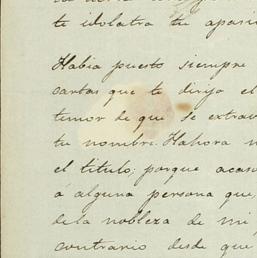 te idolatra tu apasi
Habia puesto siempre
cartas que te dirijo el
temor de que se extrav
tu nombre. Hahora n
el titulo; porque acaso
á alguna persona que,
de la nobleza de mi
contrario desde que